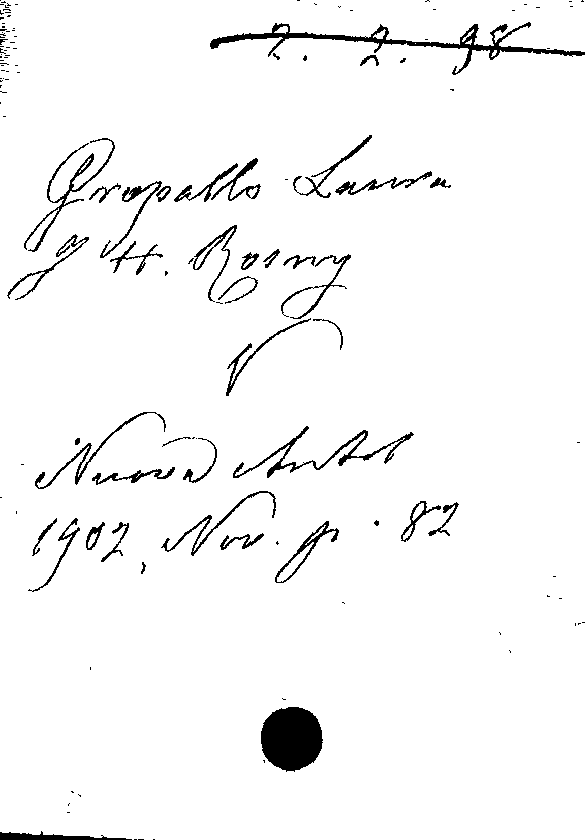 2. 2. 98
Gropallo Laura
J H. Rosny
V
Nuova Antol
1902, Nov. p. 82